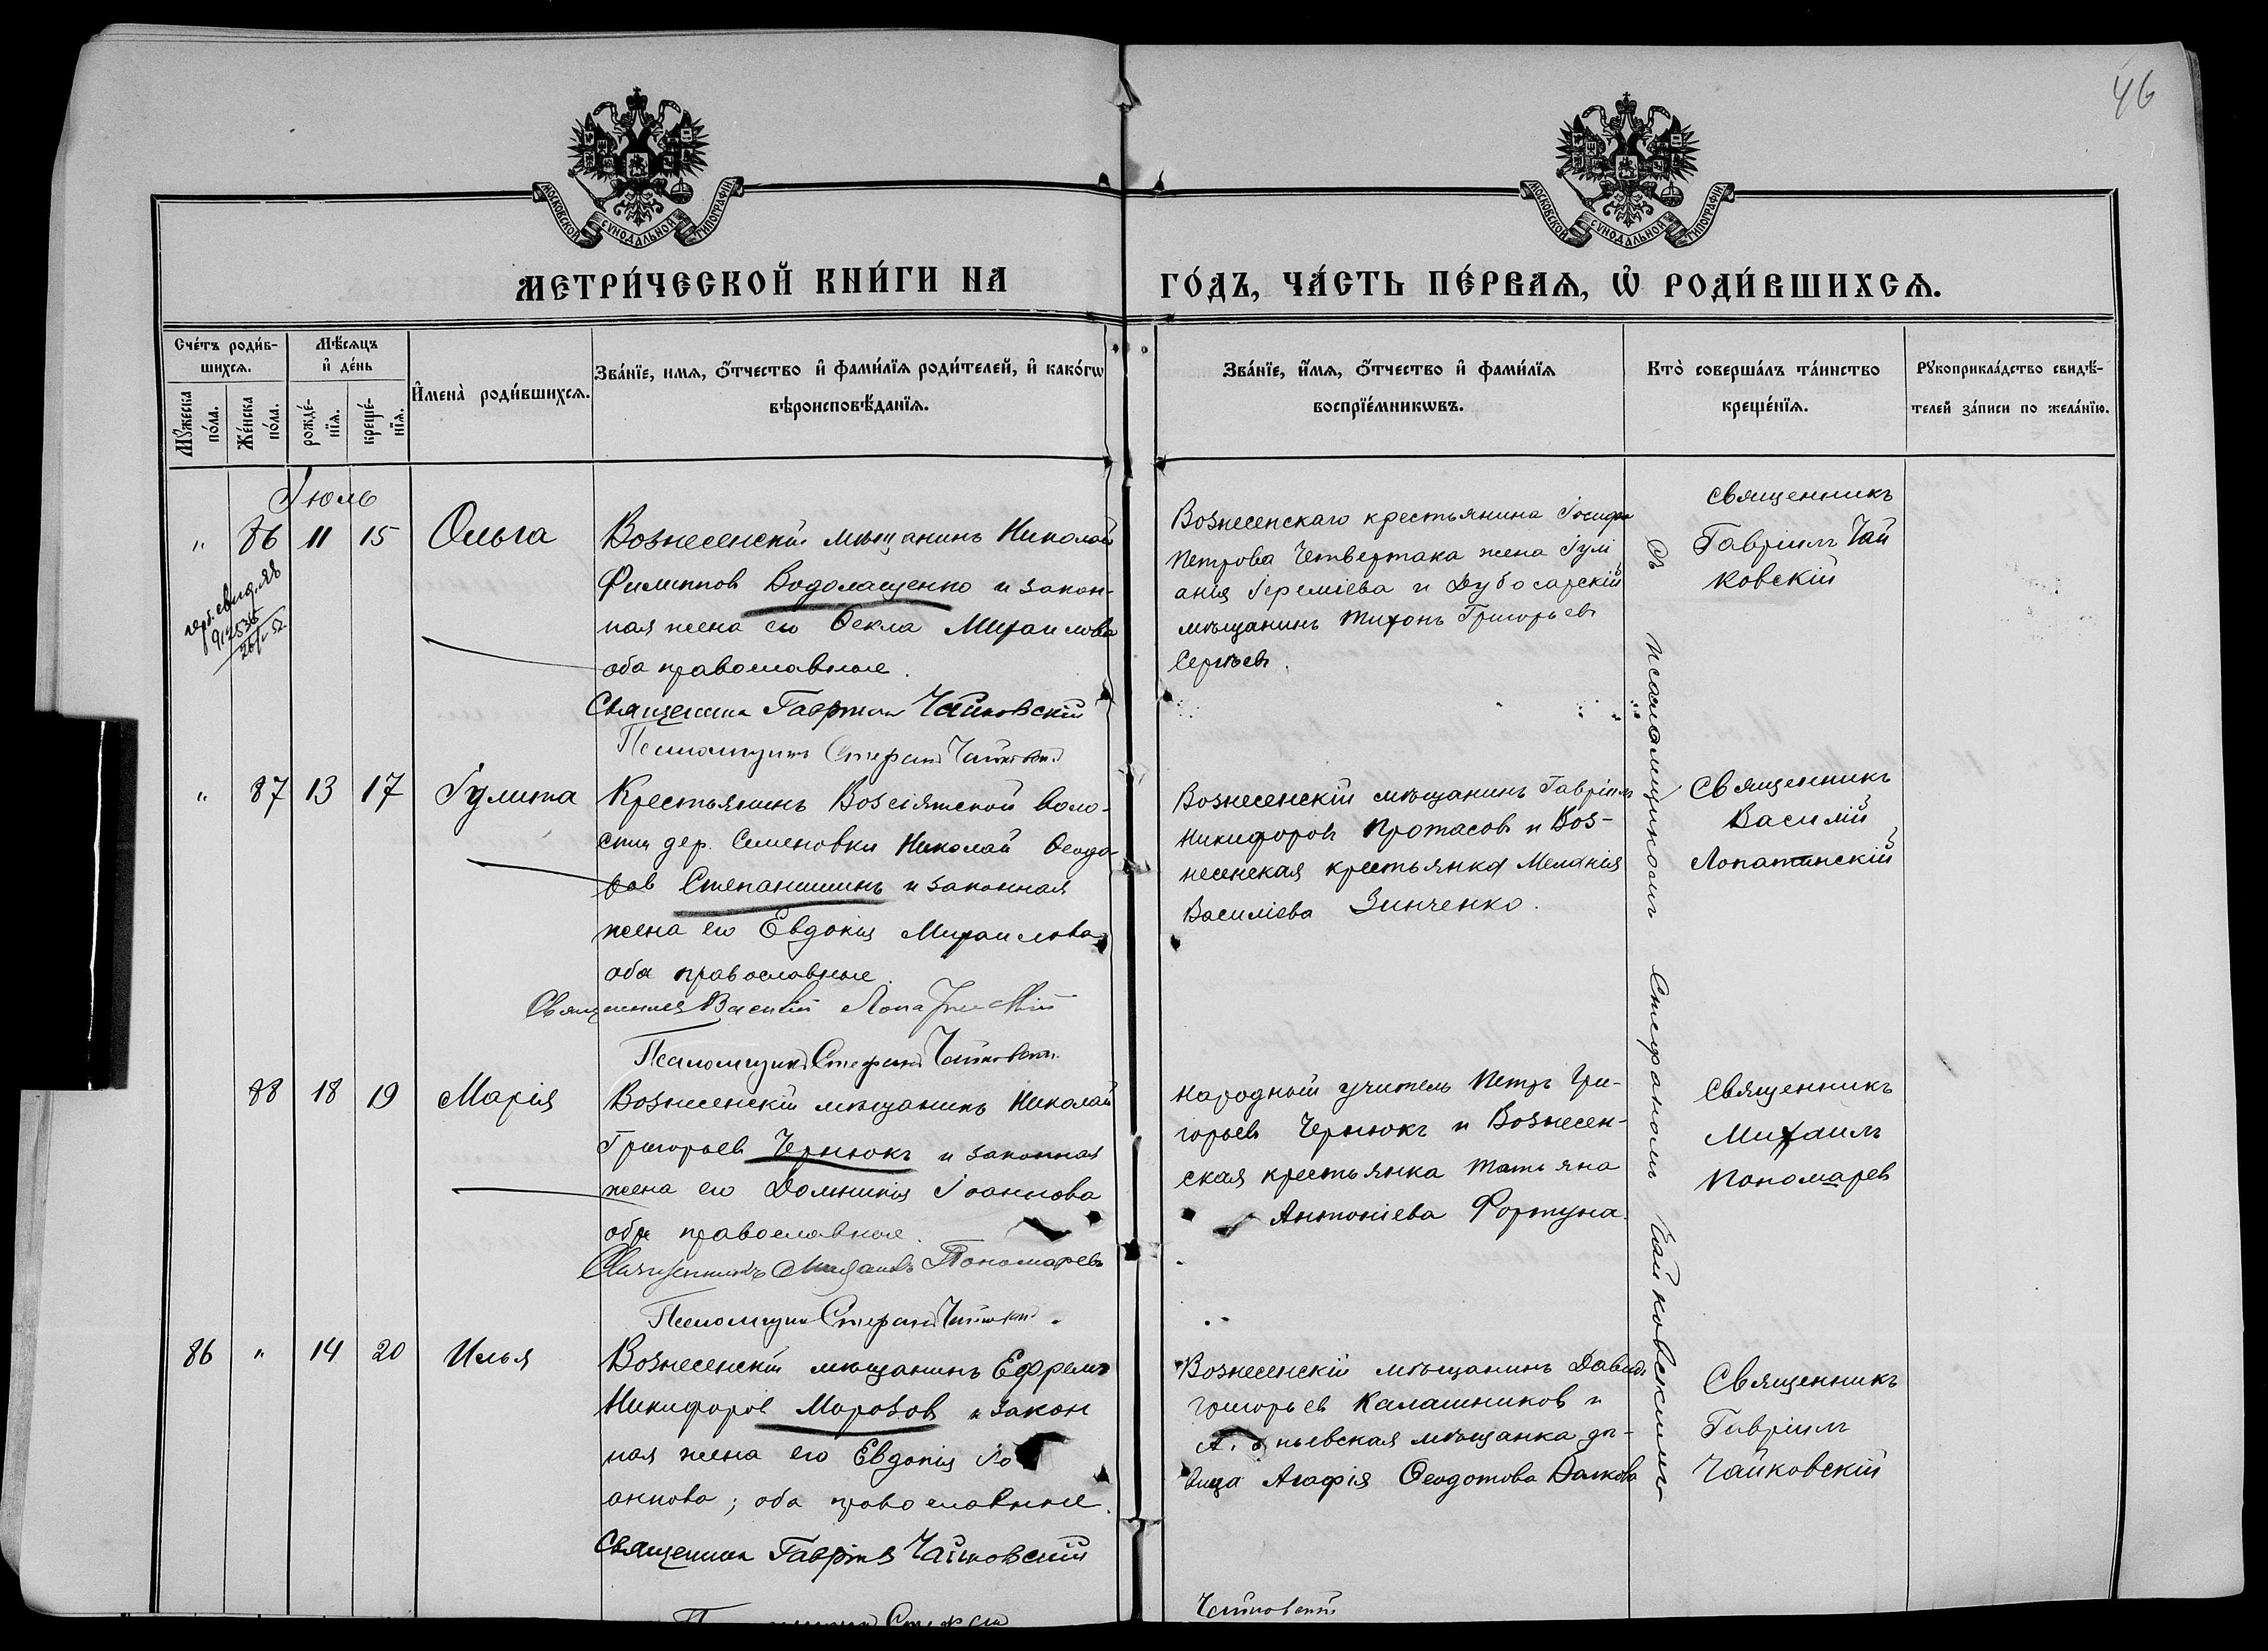 46
МОСКОВСКОЙ СѴНОДАЛЬНОЙ ТИПОГРАФІИ.
МОСКОВСКОЙ СѴНОДАЛЬНОЙ ТИПОГРАФІИ.
МЕТРИ́ЧЕСКОЙ КНИ́ГИ НА ГО́ДЪ, ЧА́СТЬ ПЕ́РВАѦ, Ѡ҆ РОДИ́ВШИХСѦ.
Сче́тъ роди́в-
шихсѧ.
Мꙋ́жеска
по́ла.
Же́нска
по́ла.
Мѣ́сяцъ
и҆ де́нь
рожде́-
нїѧ.
креще́-
нїѧ.
И҆мена̀ роди́вшихсѧ.
Зва́нїе, имѧ, ѻ҆́тчество и҆ фами́лїѧ роди́телей, и҆ како́гѡ
вѣроисповѣ́данїѧ.
Зва́нїе, и҆́мѧ, ѻ҆́тчество и҆ фами́лїѧ
воспрїе́мникѡвъ.
Кто̀ соверша́лъ та́инство
креще́нїѧ.
Рꙋкоприкла́дство свидѣ́-
телей за́писи по жела́нїю.
Іюль
" 86 11 15 Ольга
Вознесенскій мѣщанинъ Николай
Филиппов Водолащенко и закон-
ная жена его Ѳекла Михаилова
оба православные.
Священник Гавріил Чайковскій
Псаломщик Стефан Чайковскій
Вознесенскаго крестьянина Іосифа
Петрова Четвертака жена Іулі
анія Іереміева и Дубосарскій
мѣщанинъ Тихонъ Григорьев
Сергѣев.
священникъ
Гавріилъ Чай
ковскій
" 87 13 17 Іулита
Крестьянинъ Возсіятской воло-
сти дер. Семеновки Николай Ѳеодо-
ров Степанишинъ и законная
жена его Евдокія Михаилова
оба православные.
Священник Василій Лопатинскій
Псаломщик Стефан Чайковскій
Вознесенскій мѣщанинъ Гавріилъ
Никифоровъ Протасовъ и Воз-
несенская крестьянка Меланія
Василіева Зинченко.
Священникъ
Василій
Лопатинскій
88 18 19 Марія
Вознесенскій мѣщанинъ Николай
Григорьев Чернюкъ и законная
жена его Домникія Іоаннова
оба православные.
Священникъ Михаилъ Пономаревъ
Псаломщик Стефан Чайковскій
Народный учитель Петръ Гри-
горьевъ Чернюкъ и Вознесен-
ская крестьянка Татьяна
Антоніева Фортуна.
Священникъ
Михаилъ
Пономарев
86 " 14 20 Илья
Вознесенскій мѣщанинъ Ефремъ
Никифоров Морозов и закон
ная жена его Евдокія Іо
аннова; оба православные.
Священник Гавріил Чайковскій
Вознесенскій мѣщанинъ Давидъ
Григорьев Калашников и
мѣщанка дѣ-
вица Агафія Ѳеодотова Волкова
Священникъ
Гавріилъ
Чайковскій
Чайковскій
Съ псаломщикомъ Стефаномъ Чайковскимъ